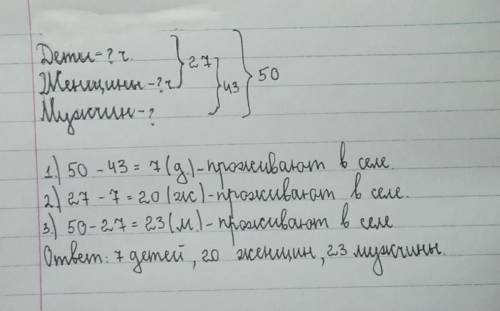 Дети-?ч.
Женщины-?ч } 27
Мужчин-? } 43 } 50
1.) 50 - 43 = 7 (д.)-проживают в селе.
2) 27 - 7 = 20 (ж)-проживают в селе.
3.) 50-27 = 23 (м.)-проживают в селе
Ответ: 7 детей, 20 женщин, 23 мужчины.